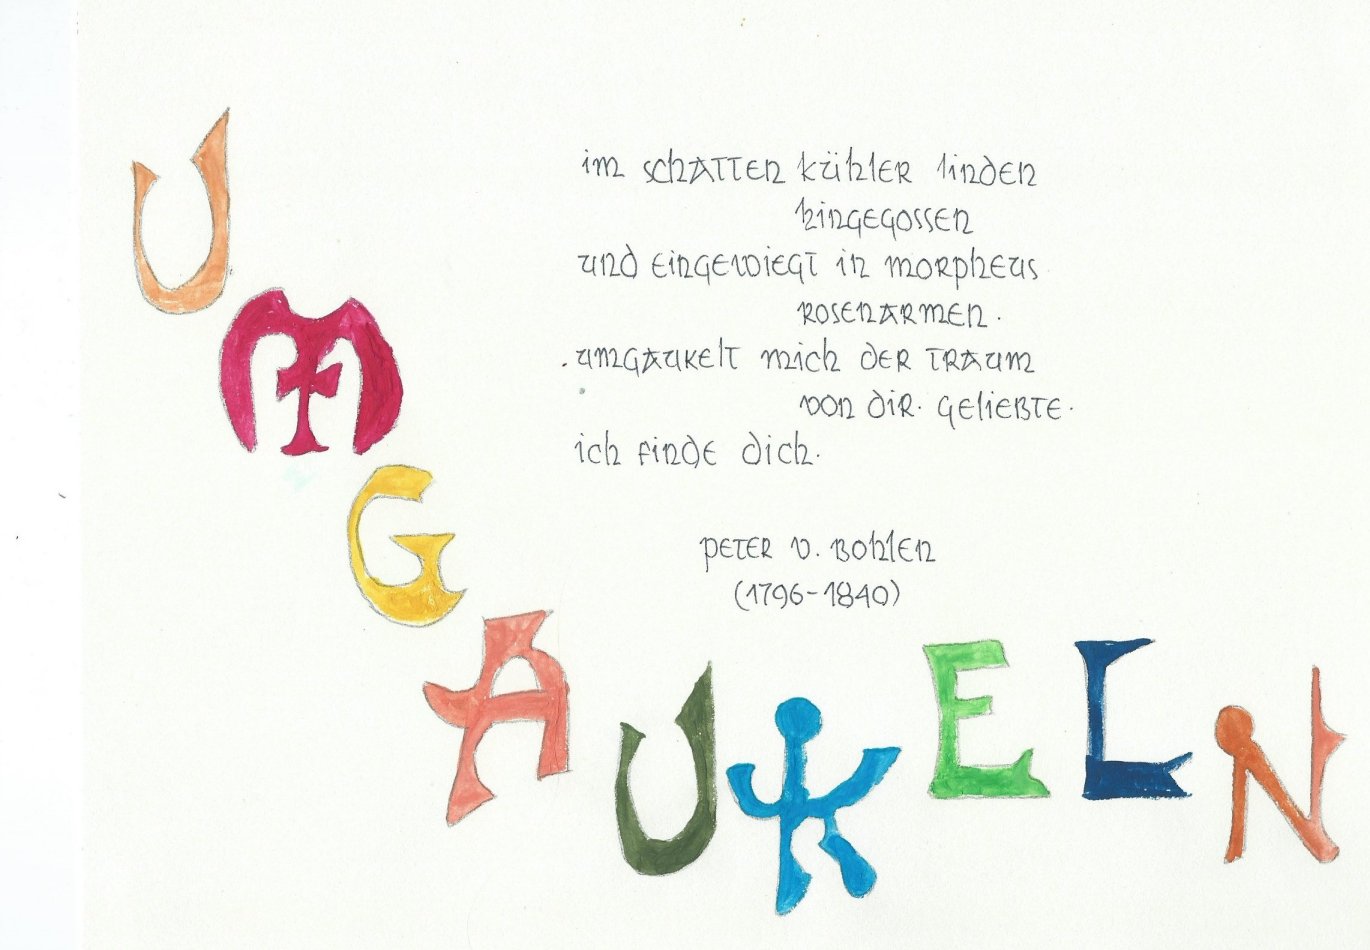 im schatten kühler linden
hingegossen
und eingewiegt in morpheus
rosenarmen.
.umgaukelt mich der traum
von dir. geliebte.
ich finde dich.
peter v. bohlen
(1796-1840)
UMGAUKELN